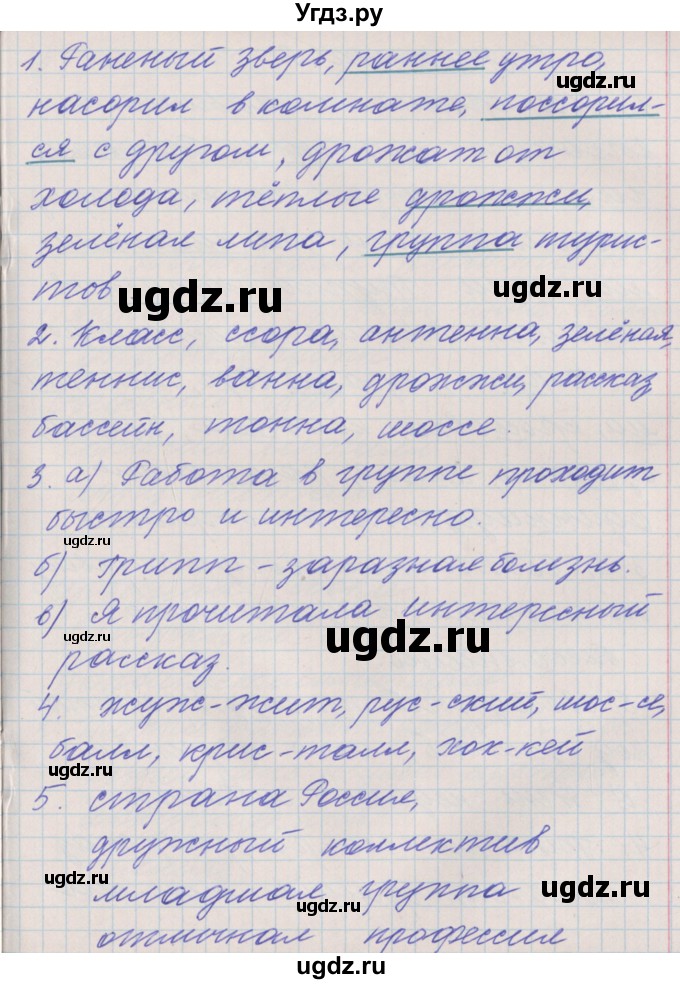 Угдз.ру
1. Раненый зверь, раннее утро,
насорил в комнате, поссорил-
ся с другом, дрожат от
холода, тёплые дрожжи,
зелёная липа, группа турис-
тов
2. Класс, ссора, антенна, зелёная,
теннис, ванна, дрожжи, рассказ
бассейн, тонна, шоссе.
3. а) Работа в группе проходит
быстро и интересно.
б) Грипп - заразная болезнь.
в) Я прочитала интересный
рассказ.
4. жуж-жит, рус-ский, шос-се,
балл, крис-талл, хок-кей
5. страна Россия,
дружный коллектив
младшая группа
отличная профессия
ugdz.ru
ugdz.ru
ugdz.ru
ugdz.ru
ugdz.ru
ugdz.ru
ugdz.ru
ugdz.ru
ugdz.ru
ugdz.ru
ugdz.ru
ugdz.ru